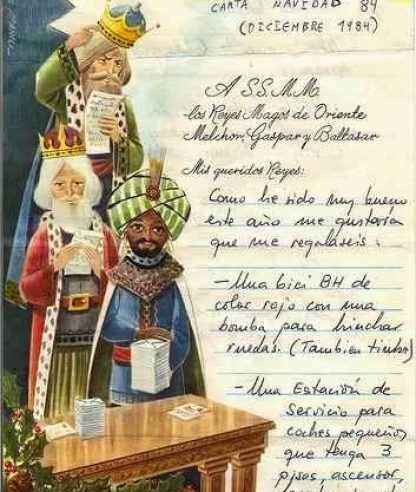 CARTA NAVIDAD 84
(DICIEMBRE 1984)
A SS.MM.
los Reyes Magos de Oriente
Melchor, Gaspar y Baltasar
Mis queridos Reyes:
Como he sido muy bueno
este año me gustaría
que me regaláseis:
- Una bici BH de
color rojo con una
bomba para hinchar
ruedas. (También timbre)
- Una Estación de
Servicio para
coches pequeños
que tenga 3
pisos, ascensor,